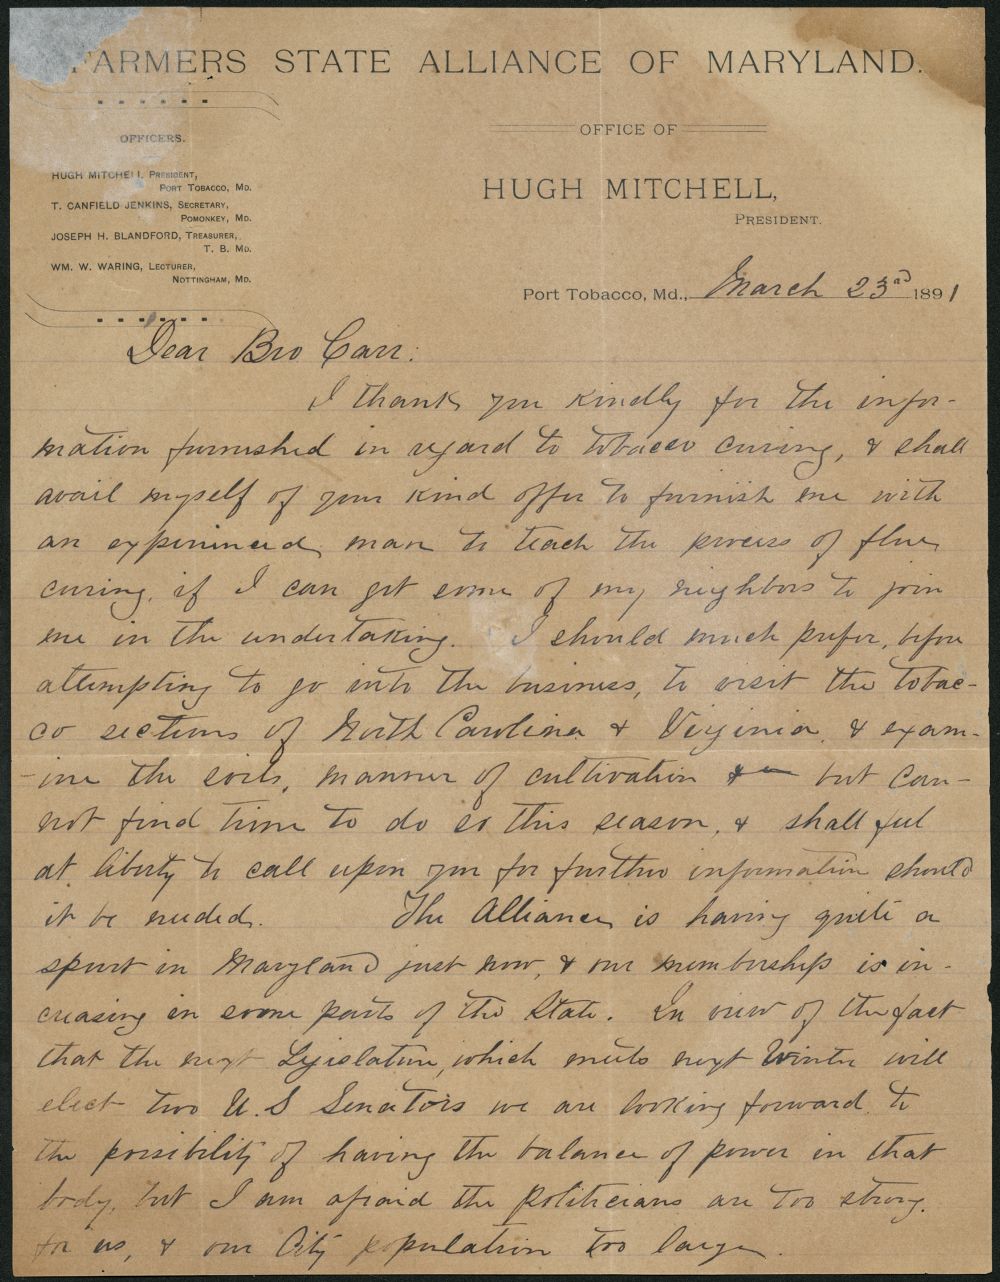 FARMERS STATE ALLIANCE OF MARYLAND.
OFFICERS.
HUGH MITCHELL, PRESIDENT,
PORT TOBACCO, MD.
T. CANFIELD JENKINS, SECRETARY,
POMONKEY, MD.
JOSEPH H. BLANDFORD, TREASURER,
T. B. MD.
WM. W. WARING, LECTURER,
NOTTINGHAM, MD.
OFFICE OF
HUGH MITCHELL,
PRESIDENT.
Port Tobacco, Md., March 23rd 1891
Dear Bro Carr:
I thank you kindly for the infor-
mation furnished in regard to tobacco curing, & shall
avail myself of your kind offer to furnish me with
an experienced man to teach the process of flue
curing, if I can get some of my neighbors to join
me in the undertaking. I should much prefer, before
attempting to go into the business, to visit the tobac-
co sections of North Carolina & Virginia, & exam-
-ine the soils, manner of cultivation &c but can-
not find time to do so this season, & shall feel
at liberty to call upon you for further information should
it be needed. The Alliance is having quite a
spurt in Maryland just now, & our membership is in-
creasing in some parts of the State. In view of the fact
that the next Legislature, which meets next Winter will
elect two U.S Senators we are looking forward to
the possibility of having the balance of power in that
body, but I am afraid the politicians are too strong
for us, & our City population too large.